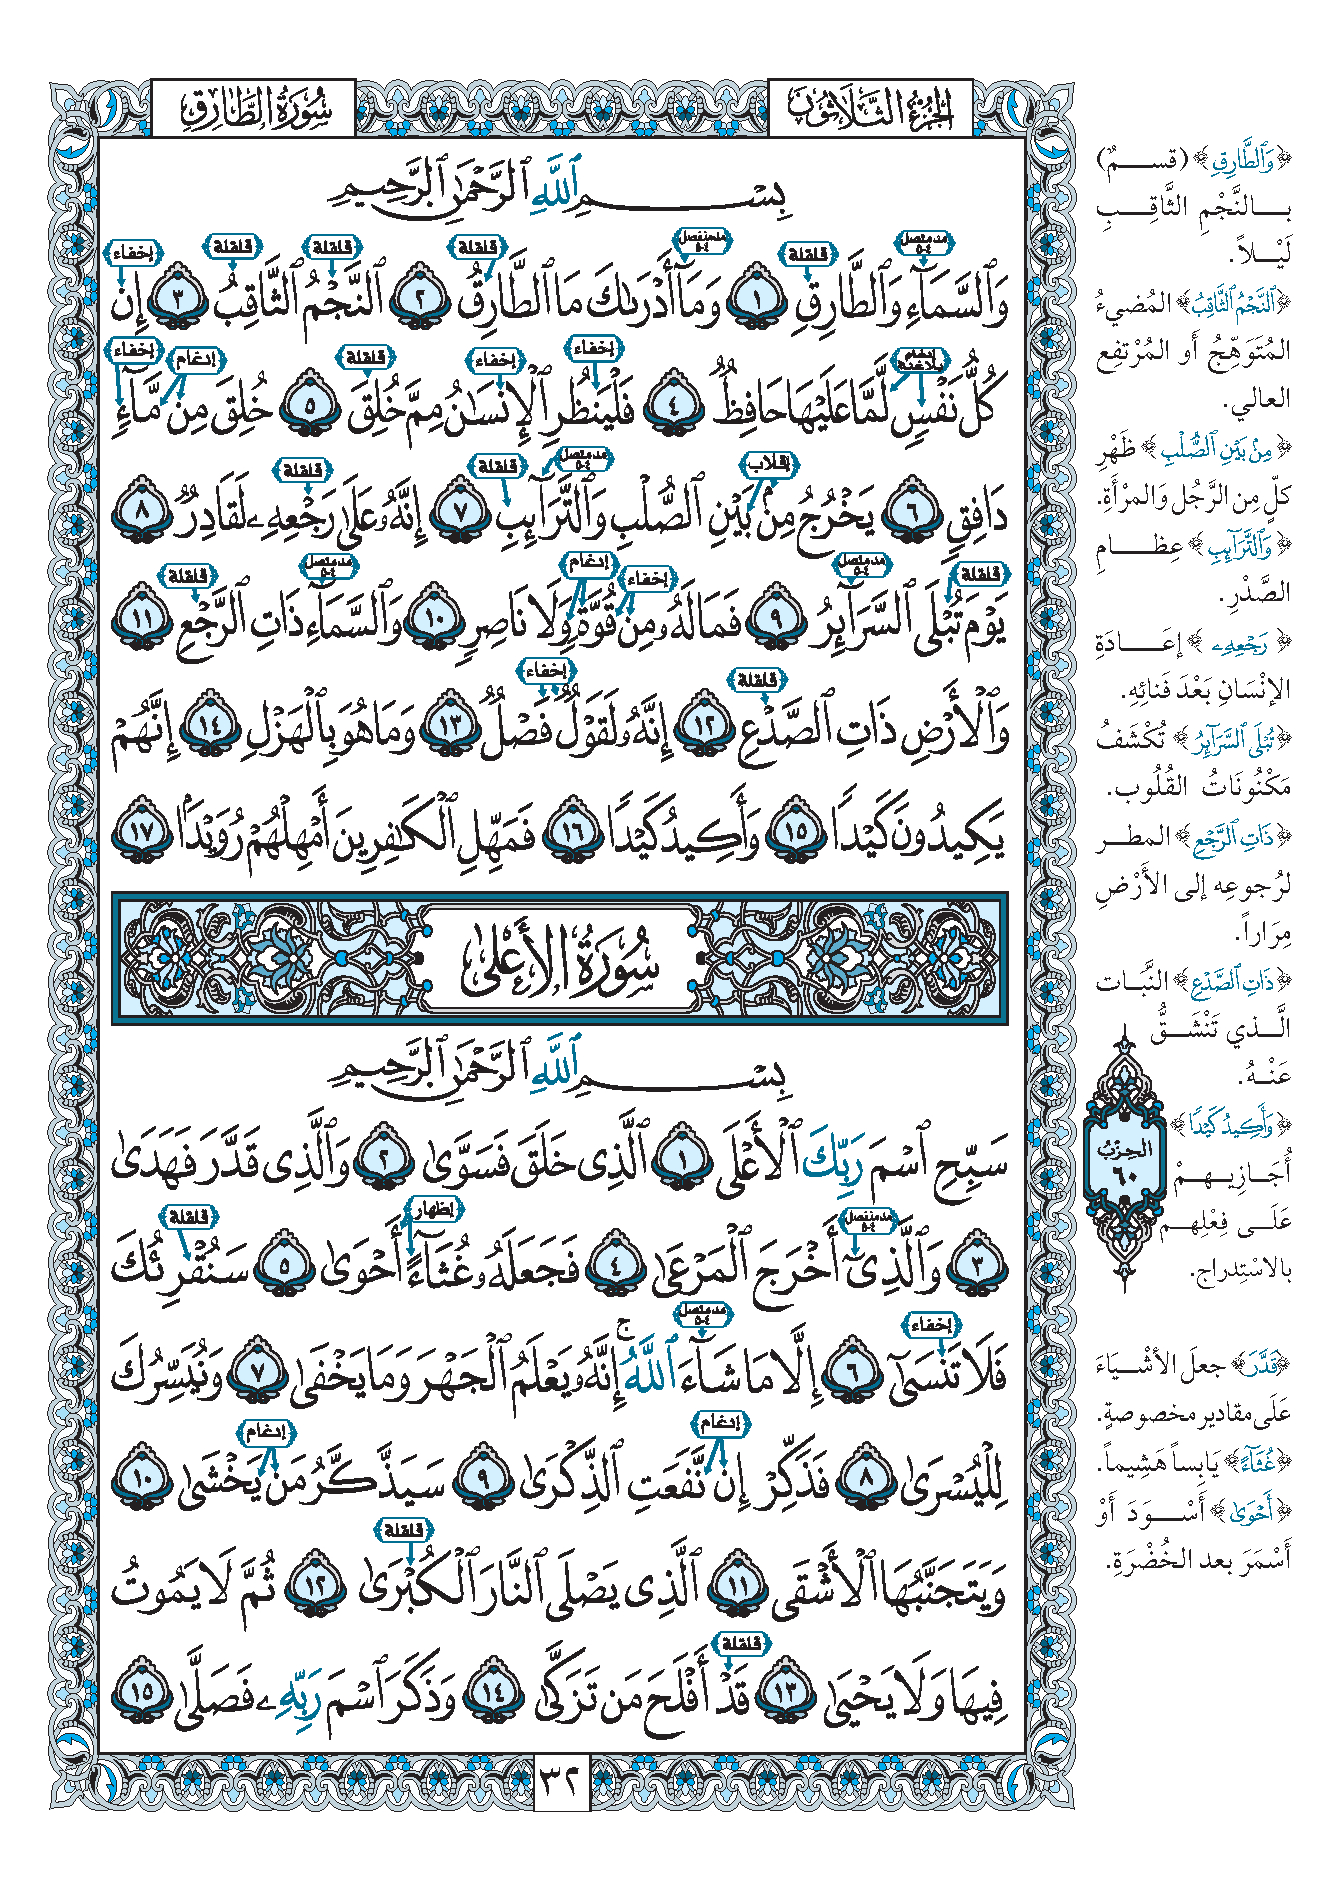 الجزء الثلاثون
سورة الطارق
بِسْمِ ٱللَّهِ ٱلرَّحْمَٰنِ ٱلرَّحِيمِ
مد متصل ٤-٥ قلقلة مد منفصل ٤-٥ قلقلة قلقلة قلقلة إخفاء
وَٱلسَّمَآءِ وَٱلطَّارِقِ ١ وَمَآ أَدْرَىٰكَ مَا ٱلطَّارِقُ ٢ ٱلنَّجْمُ ٱلثَّاقِبُ ٣ إِن
إدغام بلاغنة إخفاء إخفاء قلقلة إدغام إخفاء
كُلُّ نَفْسٍ لَّمَّا عَلَيْهَا حَافِظٌ ٤ فَلْيَنظُرِ ٱلْإِنسَٰنُ مِمَّ خُلِقَ ٥ خُلِقَ مِن مَّآءٍ
إقلاب مد متصل ٤-٥ قلقلة قلقلة
دَافِقٍ ٦ يَخْرُجُ مِنۢ بَيْنِ ٱلصُّلْبِ وَٱلتَّرَآئِبِ ٧ إِنَّهُۥ عَلَىٰ رَجْعِهِۦ لَقَادِرٌ ٨
قلقلة مد متصل ٤-٥ إخفاء إدغام مد متصل ٤-٥ قلقلة
يَوْمَ تُبْلَى ٱلسَّرَآئِرُ ٩ فَمَا لَهُۥ مِن قُوَّةٍ وَلَا نَاصِرٍ ١٠ وَٱلسَّمَآءِ ذَاتِ ٱلرَّجْعِ ١١
قلقلة إخفاء
وَٱلْأَرْضِ ذَاتِ ٱلصَّدْعِ ١٢ إِنَّهُۥ لَقَوْلٌ فَصْلٌ ١٣ وَمَا هُوَ بِٱلْهَزْلِ ١٤ إِنَّهُمْ
يَكِيدُونَ كَيْدًا ١٥ وَأَكِيدُ كَيْدًا ١٦ فَمَهِّلِ ٱلْكَٰفِرِينَ أَمْهِلْهُمْ رُوَيْدًۢا ١٧
سورة الأعلى
بِسْمِ ٱللَّهِ ٱلرَّحْمَٰنِ ٱلرَّحِيمِ
سَبِّحِ ٱسْمَ رَبِّكَ ٱلْأَعْلَى ١ ٱلَّذِى خَلَقَ فَسَوَّىٰ ٢ وَٱلَّذِى قَدَّرَ فَهَدَىٰ
مد منفصل ٤-٥ إظهار قلقلة
٣ وَٱلَّذِىٓ أَخْرَجَ ٱلْمَرْعَىٰ ٤ فَجَعَلَهُۥ غُثَآءً أَحْوَىٰ ٥ سَنُقْرِئُكَ
إخفاء مد متصل ٤-٥
فَلَا تَنسَىٰٓ ٦ إِلَّا مَا شَآءَ ٱللَّهُ ۚ إِنَّهُۥ يَعْلَمُ ٱلْجَهْرَ وَمَا يَخْفَىٰ ٧ وَنُيَسِّرُكَ
إدغام إدغام
لِلْيُسْرَىٰ ٨ فَذَكِّرْ إِن نَّفَعَتِ ٱلذِّكْرَىٰ ٩ سَيَذَّكَّرُ مَن يَخْشَىٰ ١٠
قلقلة
وَيَتَجَنَّبُهَا ٱلْأَشْقَى ١١ ٱلَّذِى يَصْلَى ٱلنَّارَ ٱلْكُبْرَىٰ ١٢ ثُمَّ لَا يَمُوتُ
قلقلة
فِيهَا وَلَا يَحْيَىٰ ١٣ قَدْ أَفْلَحَ مَن تَزَكَّىٰ ١٤ وَذَكَرَ ٱسْمَ رَبِّهِۦ فَصَلَّىٰ ١٥
٣٢
﴿وَٱلطَّارِقِ﴾ (قسـمٌ)
بـالنَّجْمِ الثَّاقِـبِ
لَيْـلاً.
﴿ٱلنَّجْمُ ٱلثَّاقِبُ﴾ المُضيءُ
المُتَوَهِّجُ أَو المُرْتفِع
العالي.
﴿مِنۢ بَيْنِ ٱلصُّلْبِ﴾ ظَهْرِ
كلٍّ مِن الرَّجُل وَالمرْأَةِ.
﴿وَٱلتَّرَآئِبِ﴾ عِظـامِ
الصَّدْرِ.
﴿رَجْعِهِۦ﴾ إعَـادَةِ
الإنْسَانِ بَعْدَ فَنائِهِ.
﴿تُبْلَى ٱلسَّرَآئِرُ﴾ تُكْشَفُ
مَكْنُونَاتُ القُلُوب.
﴿ذَاتِ ٱلرَّجْعِ﴾ المطـر
لرُجوعِه إلى الأَرْضِ
مِرَاراً.
﴿ذَاتِ ٱلصَّدْعِ﴾ النَّبَـات
الَّـذي تَنْشَـقُّ
عَنْـهُ.
﴿وَأَكِيدُ كَيْدًا﴾
أُجَـازِيـهِـمْ
عَلَـى فِعْلِهِـم
بالاسْتِدراج.
الحِزْبُ
٦٠
﴿قَدَّرَ﴾ جعلَ الأَشْـيَاءَ
عَلَى مقادير مخصوصةٍ.
﴿غُثَآءً﴾ يَابِساً هَشِيماً.
﴿أَحْوَىٰ﴾ أَسْـوَدَ أَوْ
أَسْمَرَ بعد الخُضْرَةِ.